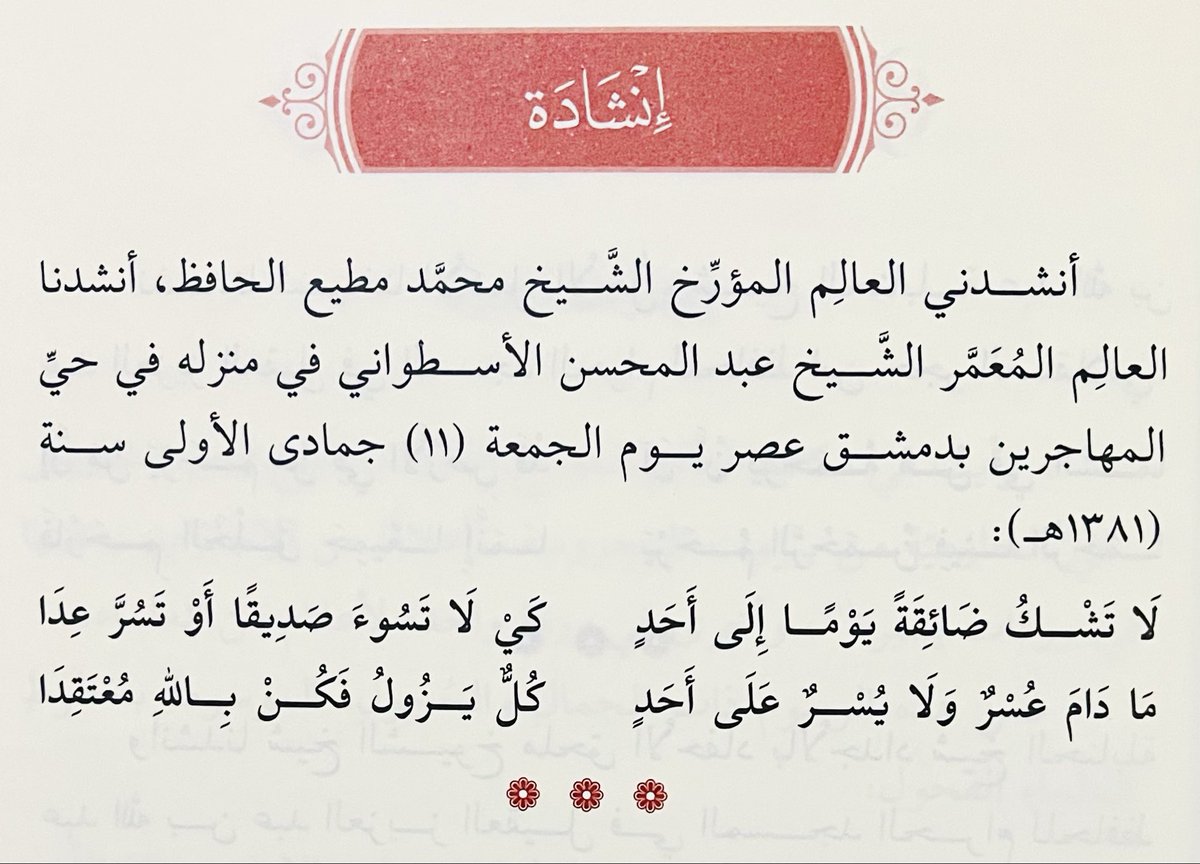 إِنْشَادَة
أنشدني العالِم المؤرِّخ الشَّيخ محمَّد مطيع الحافظ، أنشدنا
العالِم المُعَمَّر الشَّيخ عبد المحسن الأسطواني في منزله في حيِّ
المهاجرين بدمشق عصر يوم الجمعة (١١) جمادى الأولى سنة
(١٣٨١هـ):
لَا تَشْكُ ضَائِقَةً يَوْمًا إِلَى أَحَدٍ كَيْ لَا تَسُوءَ صَدِيقًا أَوْ تَسُرَّ عِدَا
مَا دَامَ عُسْرٌ وَلَا يُسْرٌ عَلَى أَحَدٍ كُلٌّ يَزُولُ فَكُنْ بِاللهِ مُعْتَقِدَا